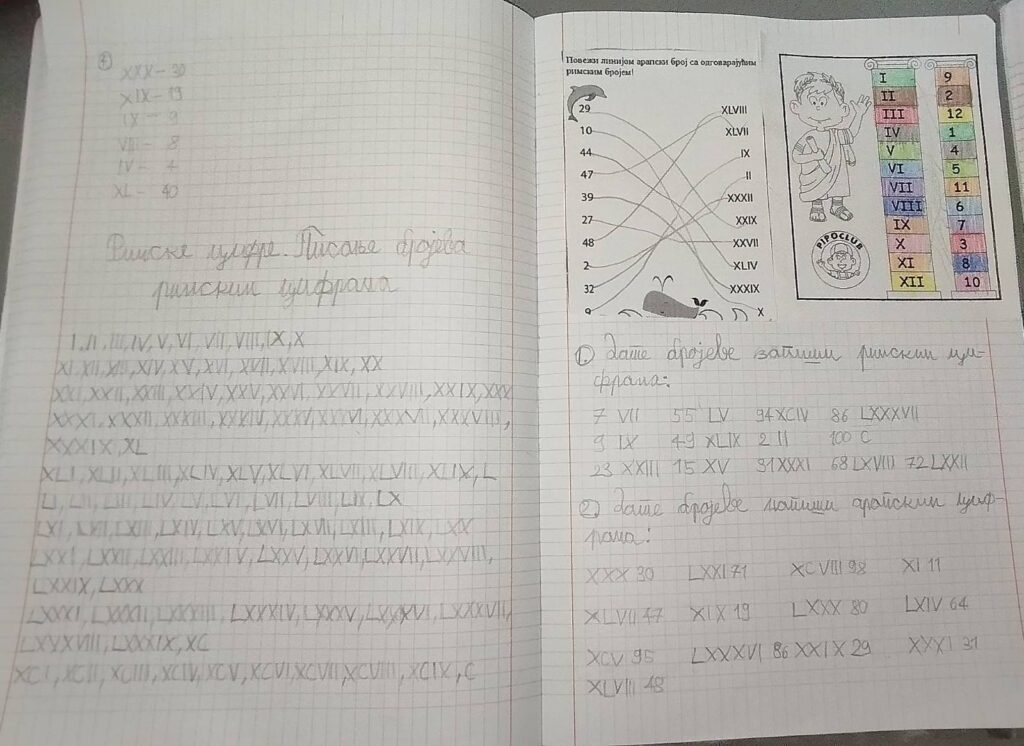 4)
XXX – 30
XIX – 19
IX – 9
VIII – 8
IV – 4
XL – 40
Римске цифре. Писање бројева
римским цифрама
I, II, III, IV, V, VI, VII, VIII, IX, X
XI, XII, XIII, XIV, XV, XVI, XVII, XVIII, XIX, XX
XXI, XXII, XXIII, XXIV, XXV, XXVI, XXVII, XXVIII, XXIX, XXX
XXXI, XXXII, XXXIII, XXXIV, XXXV, XXXVI, XXXVII, XXXVIII,
XXXIX, XL
XLI, XLII, XLIII, XLIV, XLV, XLVI, XLVII, XLVIII, XLIX, L
LI, LII, LIII, LIV, LV, LVI, LVII, LVIII, LIX, LX
LXI, LXII, LXIII, LXIV, LXV, LXVI, LXVII, LXIII, LXIX, LXX
LXXI, LXXII, LXXIII, LXXIV, LXXV, LXXVI, LXXVII, LXXVIII,
LXXIX, LXXX
LXXXI, LXXXII, LXXXIII, LXXXIV, LXXXV, LXXXVI, LXXXVII,
LXXXVIII, LXXXIX, XC
XCI, XCII, XCIII, XCIV, XCV, XCVI, XCVII, XCVIII, XCIX, C
Повежи линијом арапски број са одговарајућим
римским бројем!
29 XLVIII
10 XLVII
44 IX
47 II
39 XXXII
27 XXIX
48 XXVII
2 XLIV
32 XXXIX
9 X
I 9
II 2
III 12
IV 1
V 4
VI 5
VII 11
VIII 6
IX 7
X 3
XI 8
XII 10
PIPOCLUB
1) Дате бројеве запиши римским ци-
фрама:
7 VII 55 LV 94 XCIV 86 LXXXVII
9 IX 49 XLIX 2 II 100 C
23 XXIII 15 XV 31 XXXI 68 LXVIII 72 LXXII
2) Дате бројеве напиши арапским циф-
рама!
XXX 30 LXXI 71 XCVIII 98 XI 11
XLVII 47 XIX 19 LXXX 80 LXIV 64
XCV 95 LXXXVI 86 XXIX 29 XXXI 31
XLVIII 48